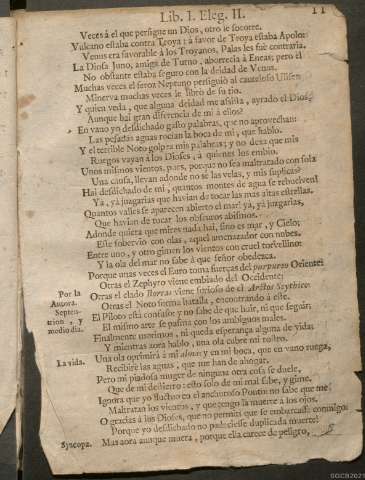 Lib. I. Eleg. II.
11
Veces à el que persigue un Dios, otro le socorre.
Vulcano estaba contra Troya; à favor de Troya estaba Apolo:
Venus era favorable à los Troyanos, Palas les fuè contraria.
La Diosa Juno, amiga de Turno, aborrecia à Eneas; pero èl
No obstante estaba seguro con la deidad de Venus.
Muchas veces el feroz Neptuno persiguiò al cauteloso Ulises
Minerva muchas veces le librò de su tio.
Y quien veda, que alguna deidad me asista, ayrado el Dios?
Aunque hai gran diferencia de mi à ellos?
En vano yo desdichado gasto palabras, que no aprovechan:
Las pesadas aguas rocian la boca de mi, que hablo.
Y el terrible Noto golpea mis palabras; y no dexa que mis
Ruegos vayan à los Dioses, à quienes los embio.
Unos mismos vientos, pues, porque no sea maltratado con sola
Una causa, llevan adonde no sè las velas, y mis suplicas?
Hai desdichado de mi, quantos montes de agua se rebuelven!
Ya, yà juzgarias que havian de tocar las mas altas estrellas.
Quantos valles se aparecen abierto el mar! ya, yà juzgarias,
Que havian de tocar los obscuros abismos.
Adonde quiera que mires nada hai, sino es mar, y Cielo;
Este sobervio con olas, aquel amenazador con nubes.
Entre uno, y otro gimen los vientos con cruel torvellino:
Y la ola del mar no sabe à que señor obedezca.
Porque unas veces el Euro toma fuerzas del purpureo Oriente:
Otras el Zephyro viene embiado del Occidente:
Otras el elado Borras viene furioso de el Arctos Scythico:
Otras el Noto forma batalla, encontrando à este.
El Piloto està confuso; y no sabe de que huir, ni que seguir;
El mismo arte se pasma con los ambiguos males.
Finalmente morimos, ni queda esperanza alguna de vida;
Y mientras aora hablo, una ola cubre mi rostro.
Una ola oprimirà à mi alma; y en mi boca, que en vano ruega,
Recibirè las aguas, que me han de ahogar.
Pero mi piadosa muger de ninguna otra cosa se duele,
Que de mi destierro: esto solo de mi mal sabe, y gime.
Ignora que yo fluctuo en el anchuroso Ponto: no sabe que me
Maltratan los vientos, y que tengo la muerte à los ojos.
O gracias à los Dioses, que no permití que se embarcasse conmigo:
Porque yo desdichado no padeciesse duplicada muerte!
Mas aora aunque muera, porque ella carece de peligro,
Por la
Aurora.
Septen-
trion, y
mediodia.
La vida.
Syncopa.